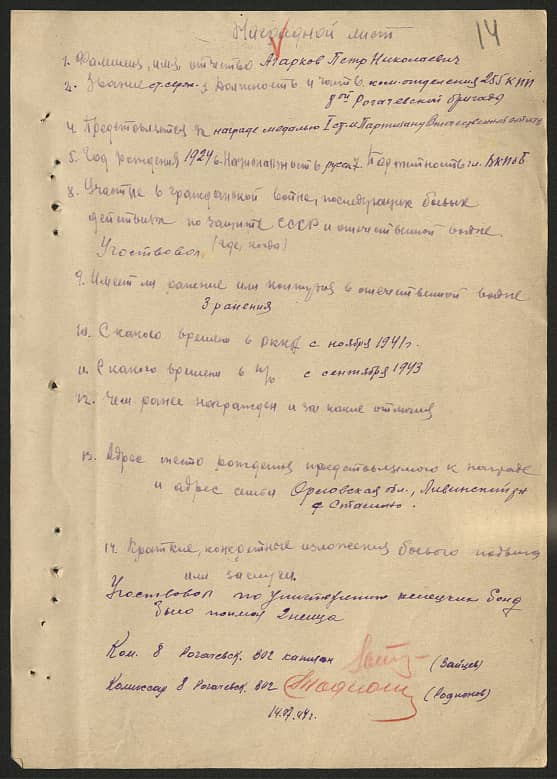 Наградной лист
14
1. Фамилия, имя, отчество Агарков Петр Николаевич
2. Звание ст. серж. 3 Должность и часть ком. отделения 255 КПП
8ой Рогачевской бригады
4. Представляется к награде медалью I ст. "Партизану Отечественной войны"
5. Год рождения 1924 6. Национальность русск 7. Партийность чл. ВКПб
8. Участие в гражданской войне, последующих боевых
действиях по защите СССР и отечественной войне.
Участвовал (где, когда)
9. Имеет ли ранение или контузия в отечественной войне
3 ранения
10. С какого времени в РККА с ноября 1941 г.
11. С какого времени в п/о с сентября 1943
12. Чем ранее награжден и за какие отличия
13. Адрес место рождения представляемого к награде
и адрес семьи Орловская обл., Ливинский рн
д
14. Краткие, конкретные изложения боевого подвига
или заслуги.
Участвовал по уничтожению немецких банд
было поймал 2 немца
Ком. 8 Рогачевск. ВО2 капитан (Зайцев)
Комиссар 8 Рогачевск. ВО2 (Родионов)
14.07.44 г.